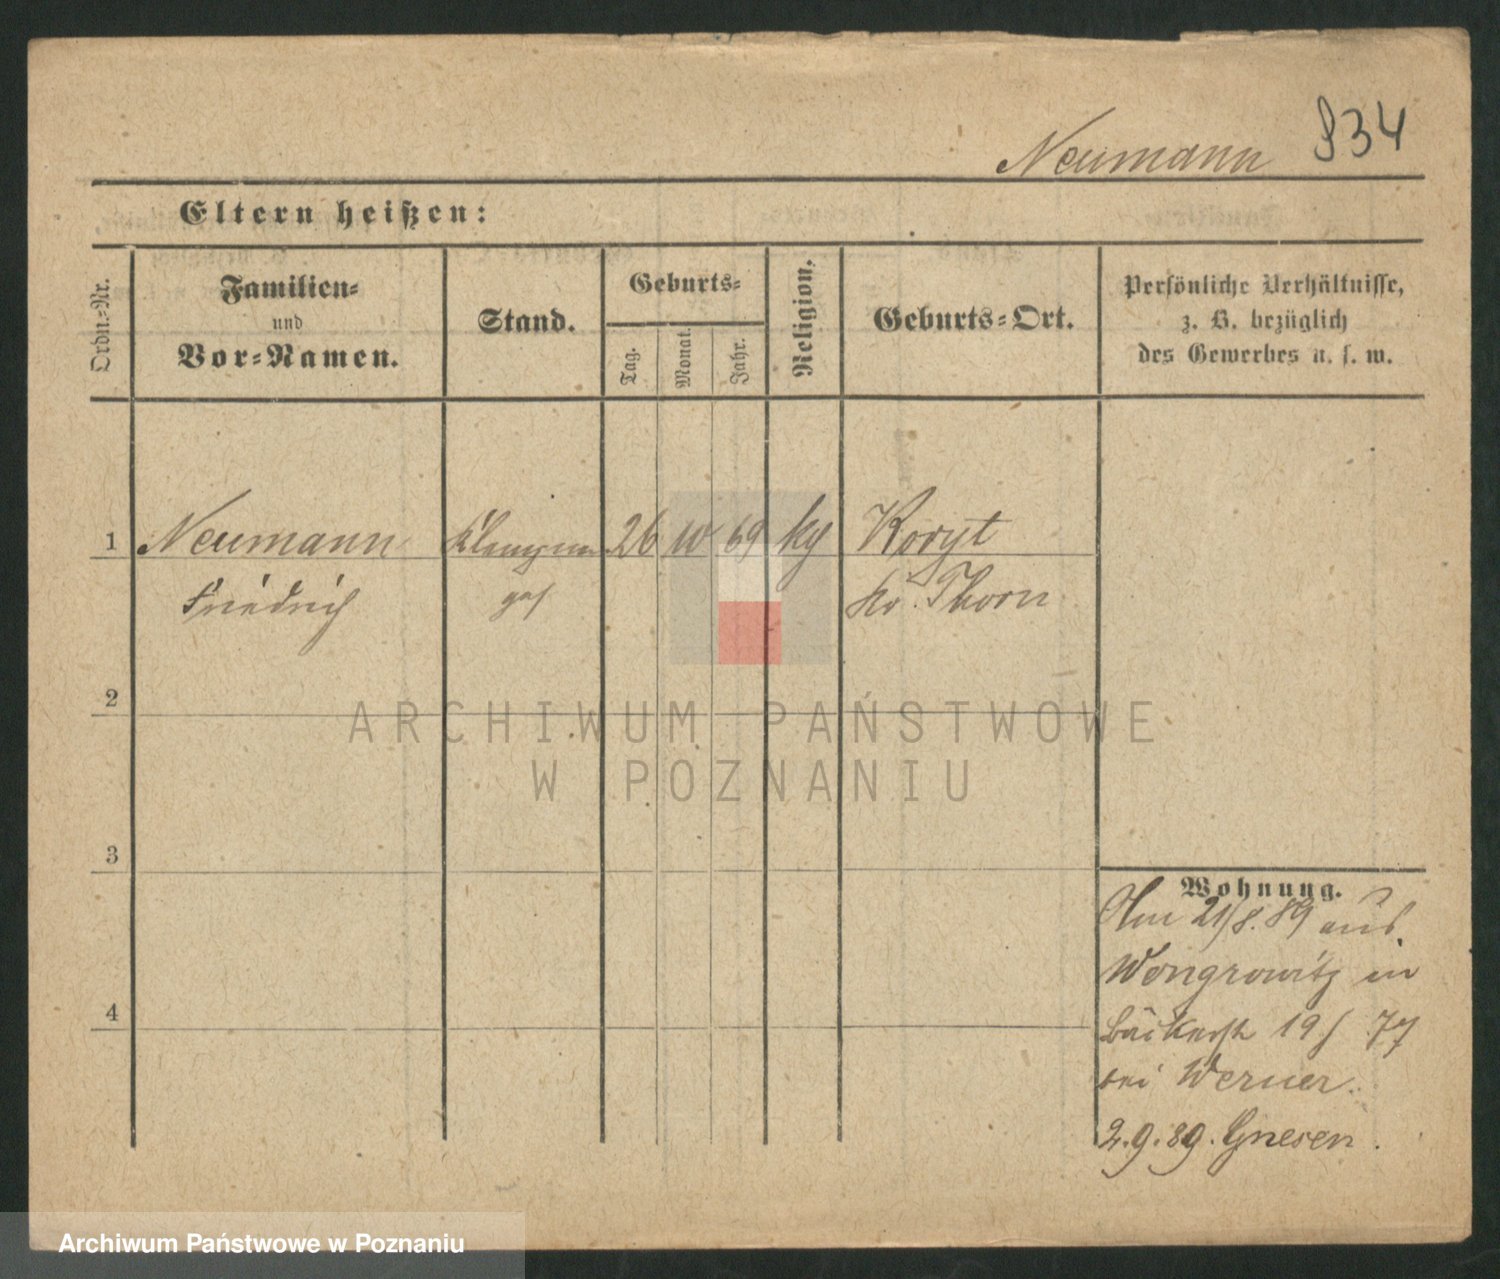 Neumann 834
Eltern heißen:
Ordn.-Nr.
Familien-
und
Vor-Namen.
Stand.
Geburts-
Tag.
Monat.
Jahr.
Religion.
Geburts-Ort.
Persönliche Verhältnisse,
z. B. bezüglich
des Gewerbes u. s. w.
1 Neumann 26 10 69 Koryt
Friedrich Kr. Thorn
2
3
4
Wohnung.
Am 21/8. 89 aus
Wongrowitz in
Bäckerstr 19
bei Werner.
2.9.89. Gnesen.
ARCHIWUM PAŃSTWOWE
W POZNANIU
Archiwum Państwowe w Poznaniu